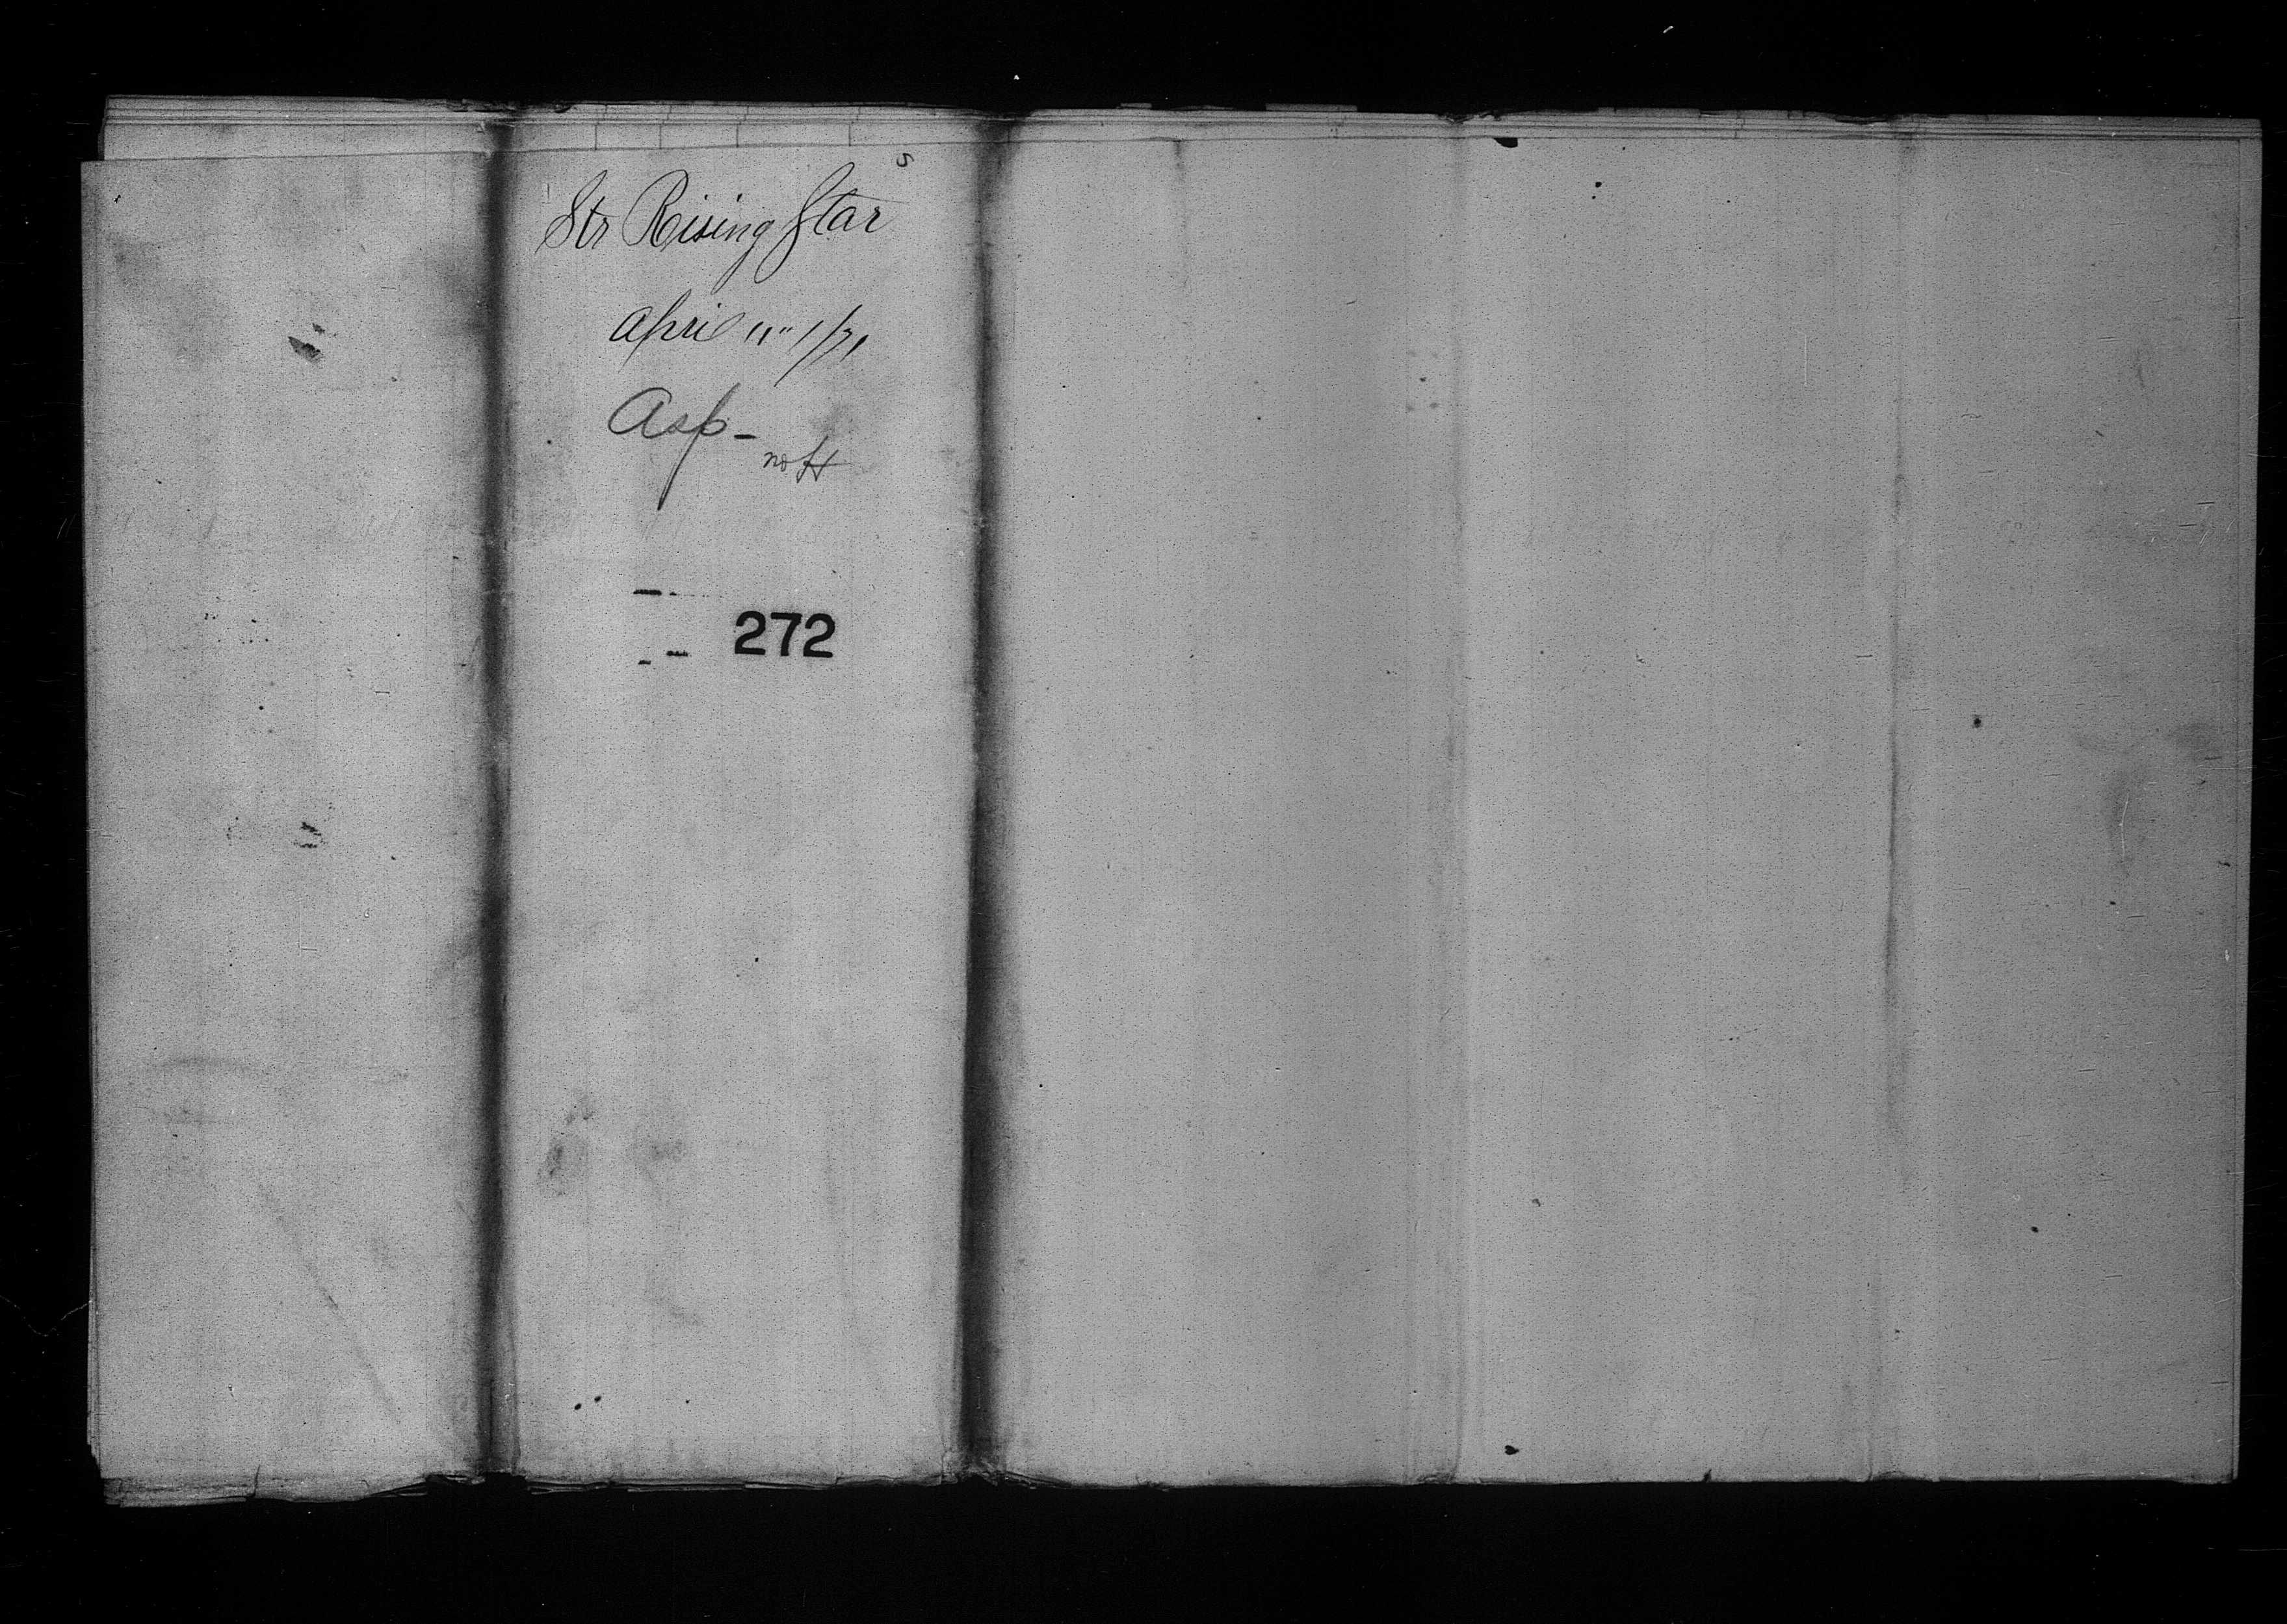 s
Str Rising Star
April 11" 1/71
Asp-
no H
272